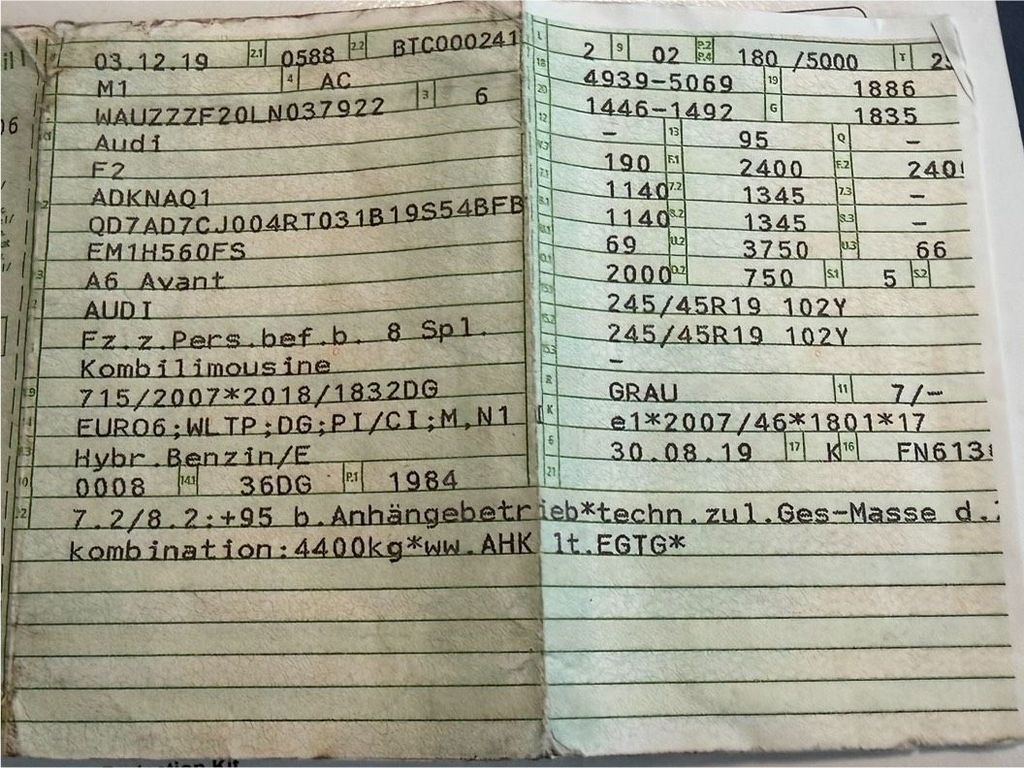 03.12.19 2.1 0588 2.2 BTC000241
M1 4 AC
WAUZZZF20LN037922 3 6
Audi
F2
ADKNAQ1
QD7AD7CJ004RT031B19S54BFB
EM1H560FS
A6 Avant
AUDI
Fz.z.Pers.bef.b. 8 Spl.
Kombilimousine
715/2007*2018/1832DG
EURO6;WLTP;DG;PI/CI;M,N1
Hybr.Benzin/E
0008 14.1 36DG P.1 1984
L 2 9 02 P.2 P.4 180 /5000 T
18 4939-5069 19 1886
20 1446-1492 G 1835
12 - 13 95 Q -
V.7 190 F.1 2400 F.2 240
7.1 1140 7.2 1345 7.3 -
8.1 1140 8.2 1345 8.3 -
U.1 69 U.2 3750 U.3 66
O.1 2000 O.2 750 S.1 5 S.2
15.1 245/45R19 102Y
15.2 245/45R19 102Y
15.3 -
R GRAU 11 7/-
K e1*2007/46*1801*17
6 30.08.19 17 K 16 FN613
21
22 7.2/8.2:+95 b.Anhängebetrieb*techn.zul.Ges-Masse d.
kombination:4400kg*ww.AHK lt.EGTG*